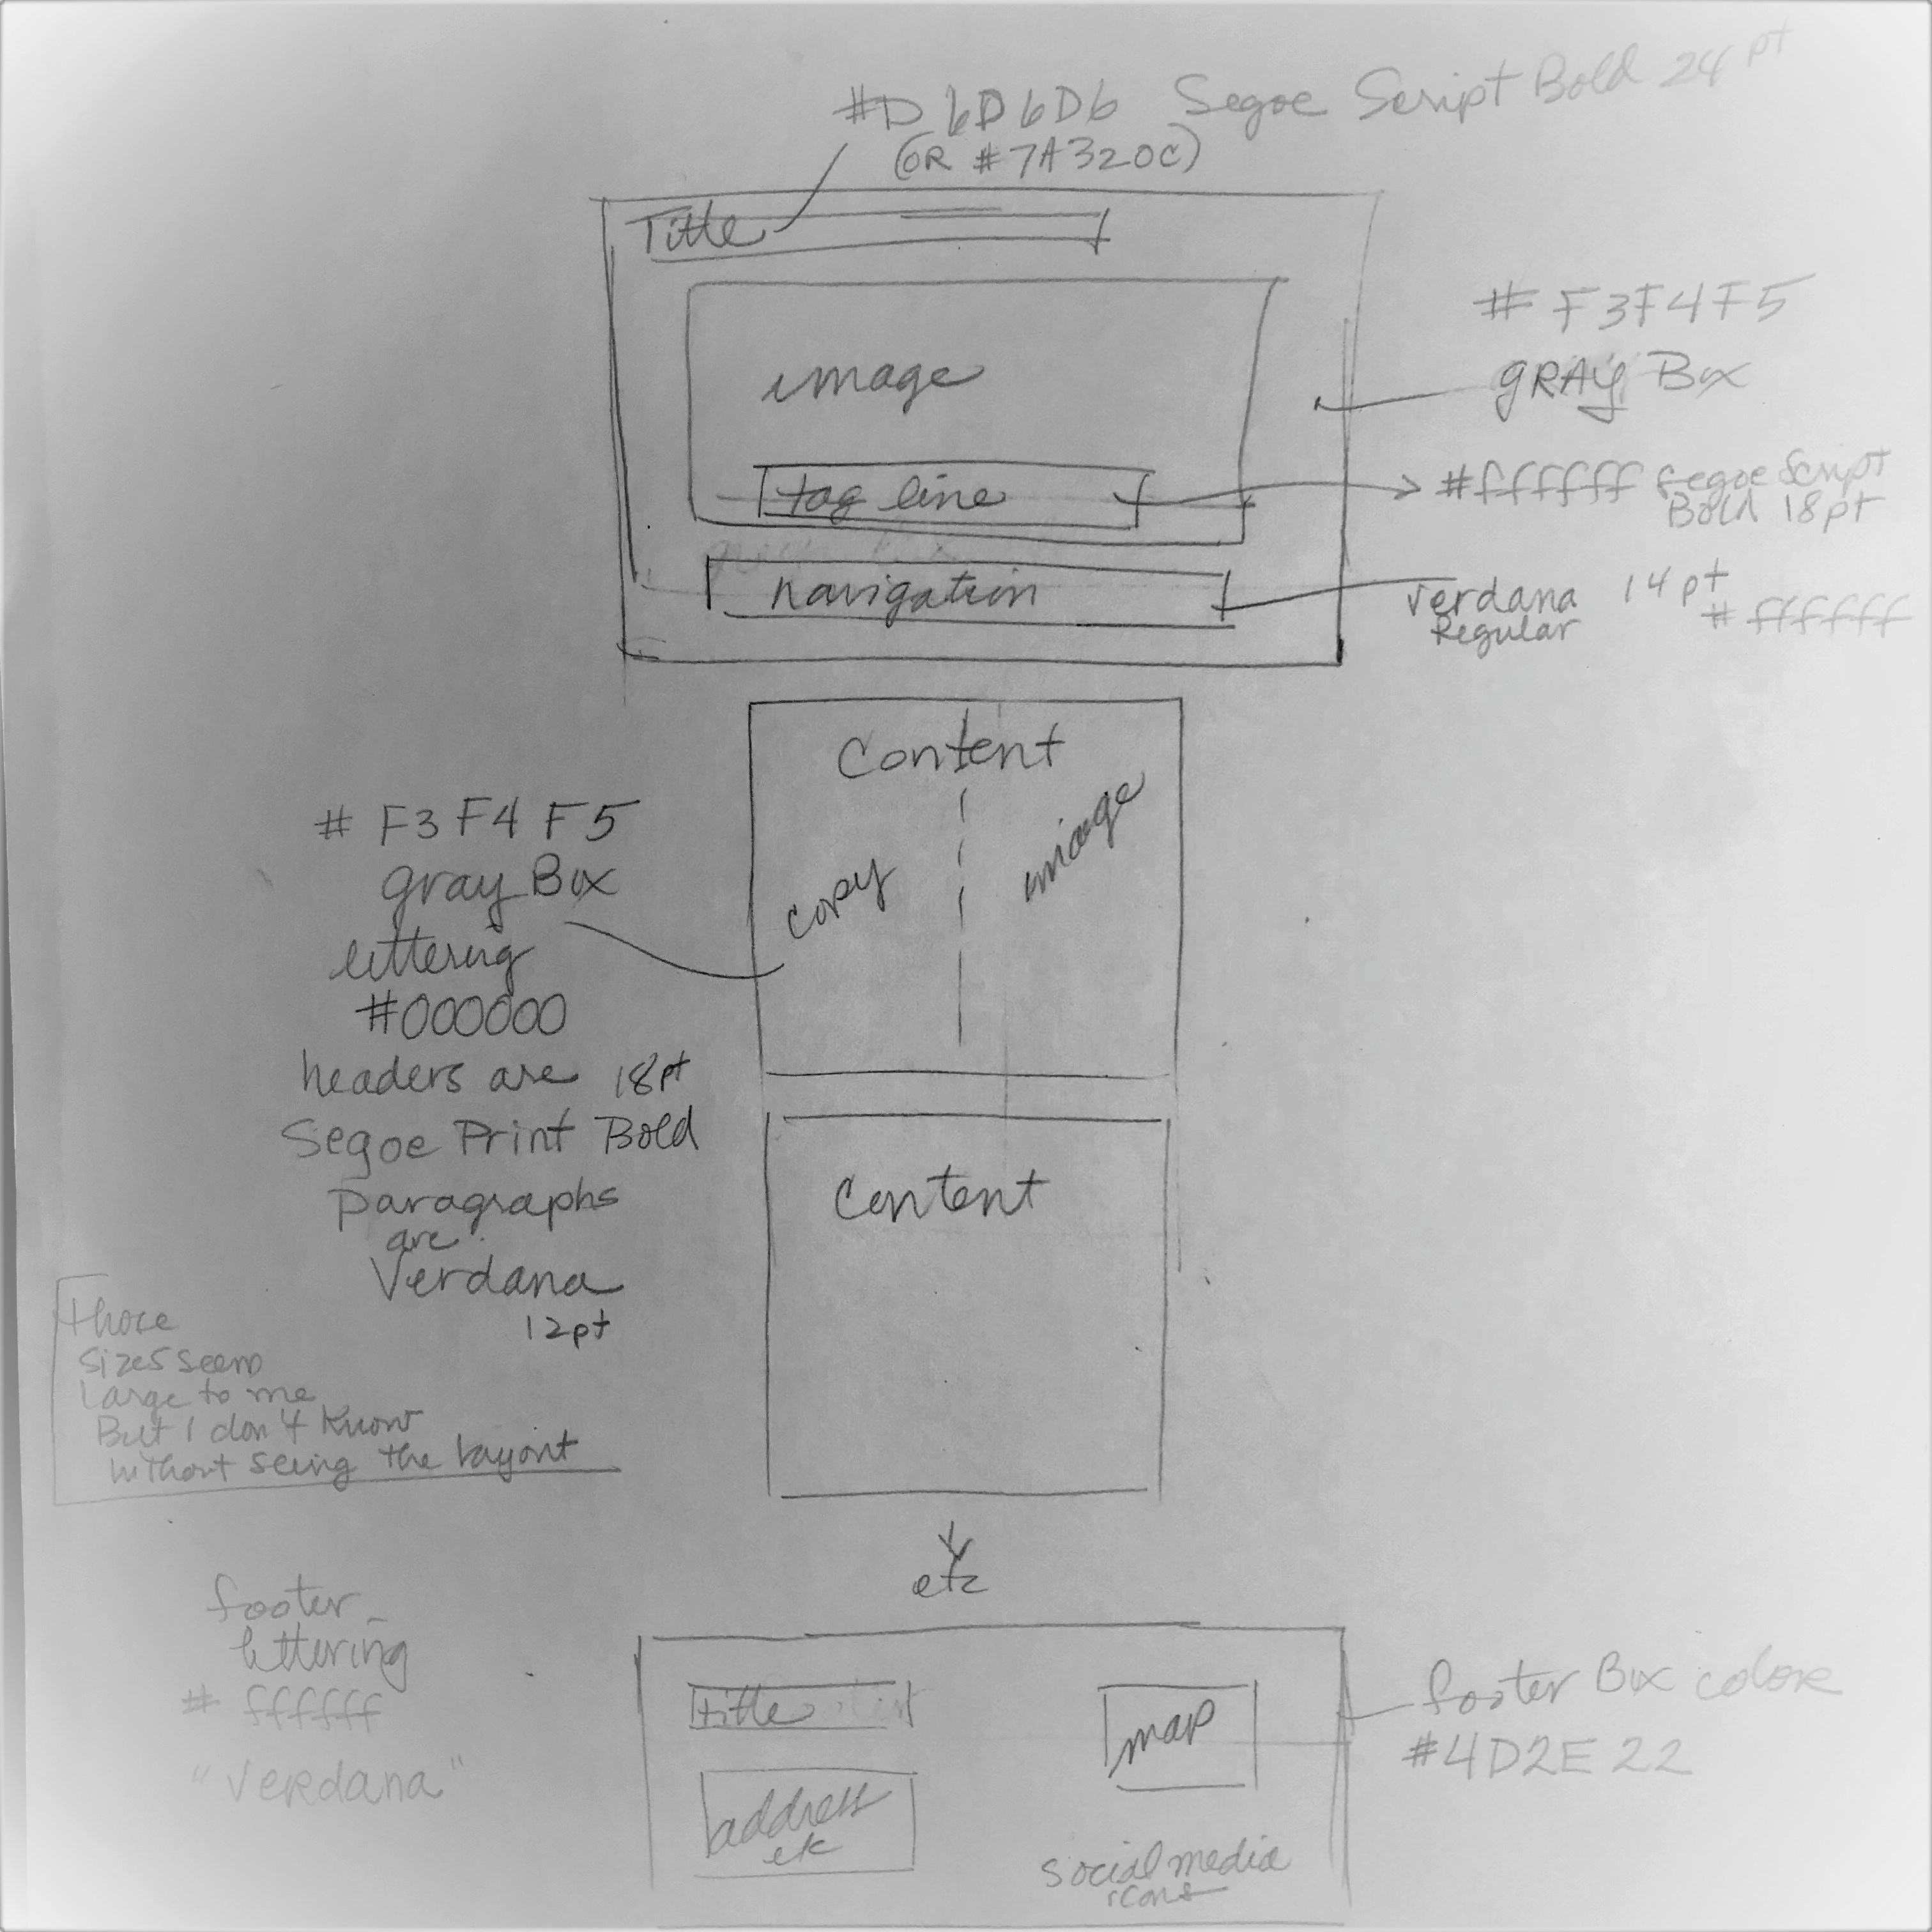 #D6D6D6 Segoe Script Bold 24 pt
(OR #7A320C)
Title
image
# F3F4F5
GRAY Box
tag line
#ffffff Segoe Script
Bold 18pt
navigation
Verdana 14pt
Regular # ffffff
Content
copy
image
# F3F4F5
gray Box
lettering
#000000
headers are 18pt
Segoe Print Bold
Paragraphs
are
Verdana
12pt
Content
those
sizes seem
large to me
But I don't know
without seeing the layout
etc
footer
lettering
# ffffff
"Verdana"
title
address
etc
map
social media
icons
footer Box color
#4D2E22